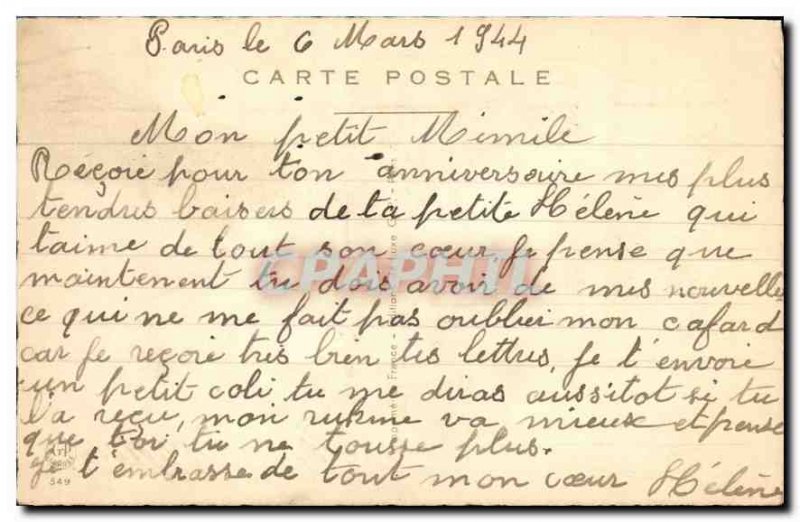 Paris le 6 Mars 1944
CARTE POSTALE
Mon petit Mimile
Reçoie pour ton anniversaire mes plus
tendres baisers de ta petite Hélène qui
t'aime de tout son cœur, je pense que
maintenent tu dois avoir de mes nouvelles
ce qui ne me fait pas oublier mon cafard
car je reçoie tres bien tes lettres, je t'envoie
un petit coli tu me diras aussitot si tu
l'a reçu, mon rhume va mieux et pense
que toi tu ne tousse plus.
je t'embrasse de tout mon cœur Hélène
549
CPAPHIL